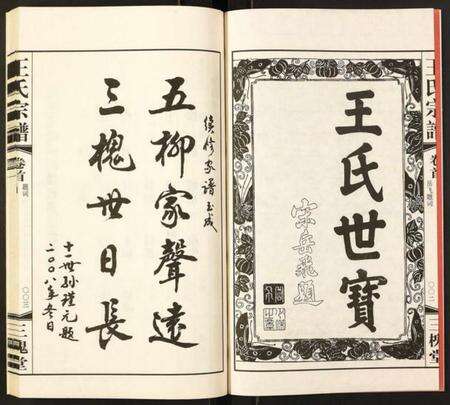 王氏宗譜
卷首
岳飛題词
〇〇二
三槐堂
王氏世寶
宋岳飛題
續修家譜玉成
五柳家聲遠
三槐世日長
十一世孫瑾元題
二〇〇八年冬日
王氏宗譜
卷首
題词
〇〇三
三槐堂